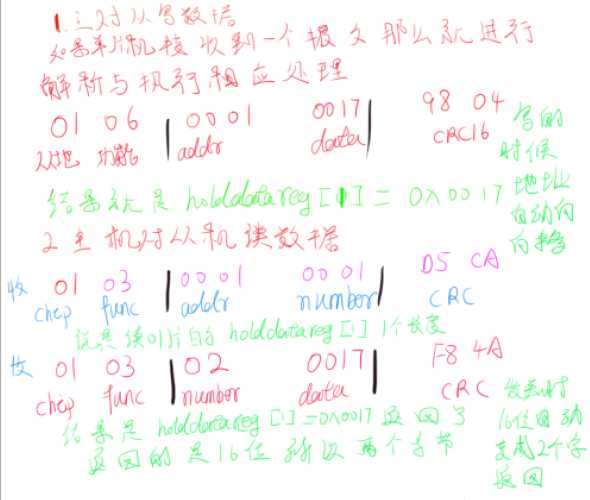 1.主对从写数据
如果单片机接收到一个报文那么就进行
解析与执行相应处理
01 06 | 0001 0017 | 98 04
从地 功能 addr data CRC16
写的
时候
地址
自动向
结果就是 holddatareg[1] = 0x0017
2 主机对从机读数据
收 01 03 | 0001 0001 | D5 CA
chip func addr number CRC
就是读01片的 holddatareg[1] 1个长度
发 01 03 | 02 0017 | F8 4A
chip func number data CRC
结果是 holddatareg[1]=0x0017 返回了
返回的是16位 所以两个字节
发送时
16位自动
变成2个字
返回